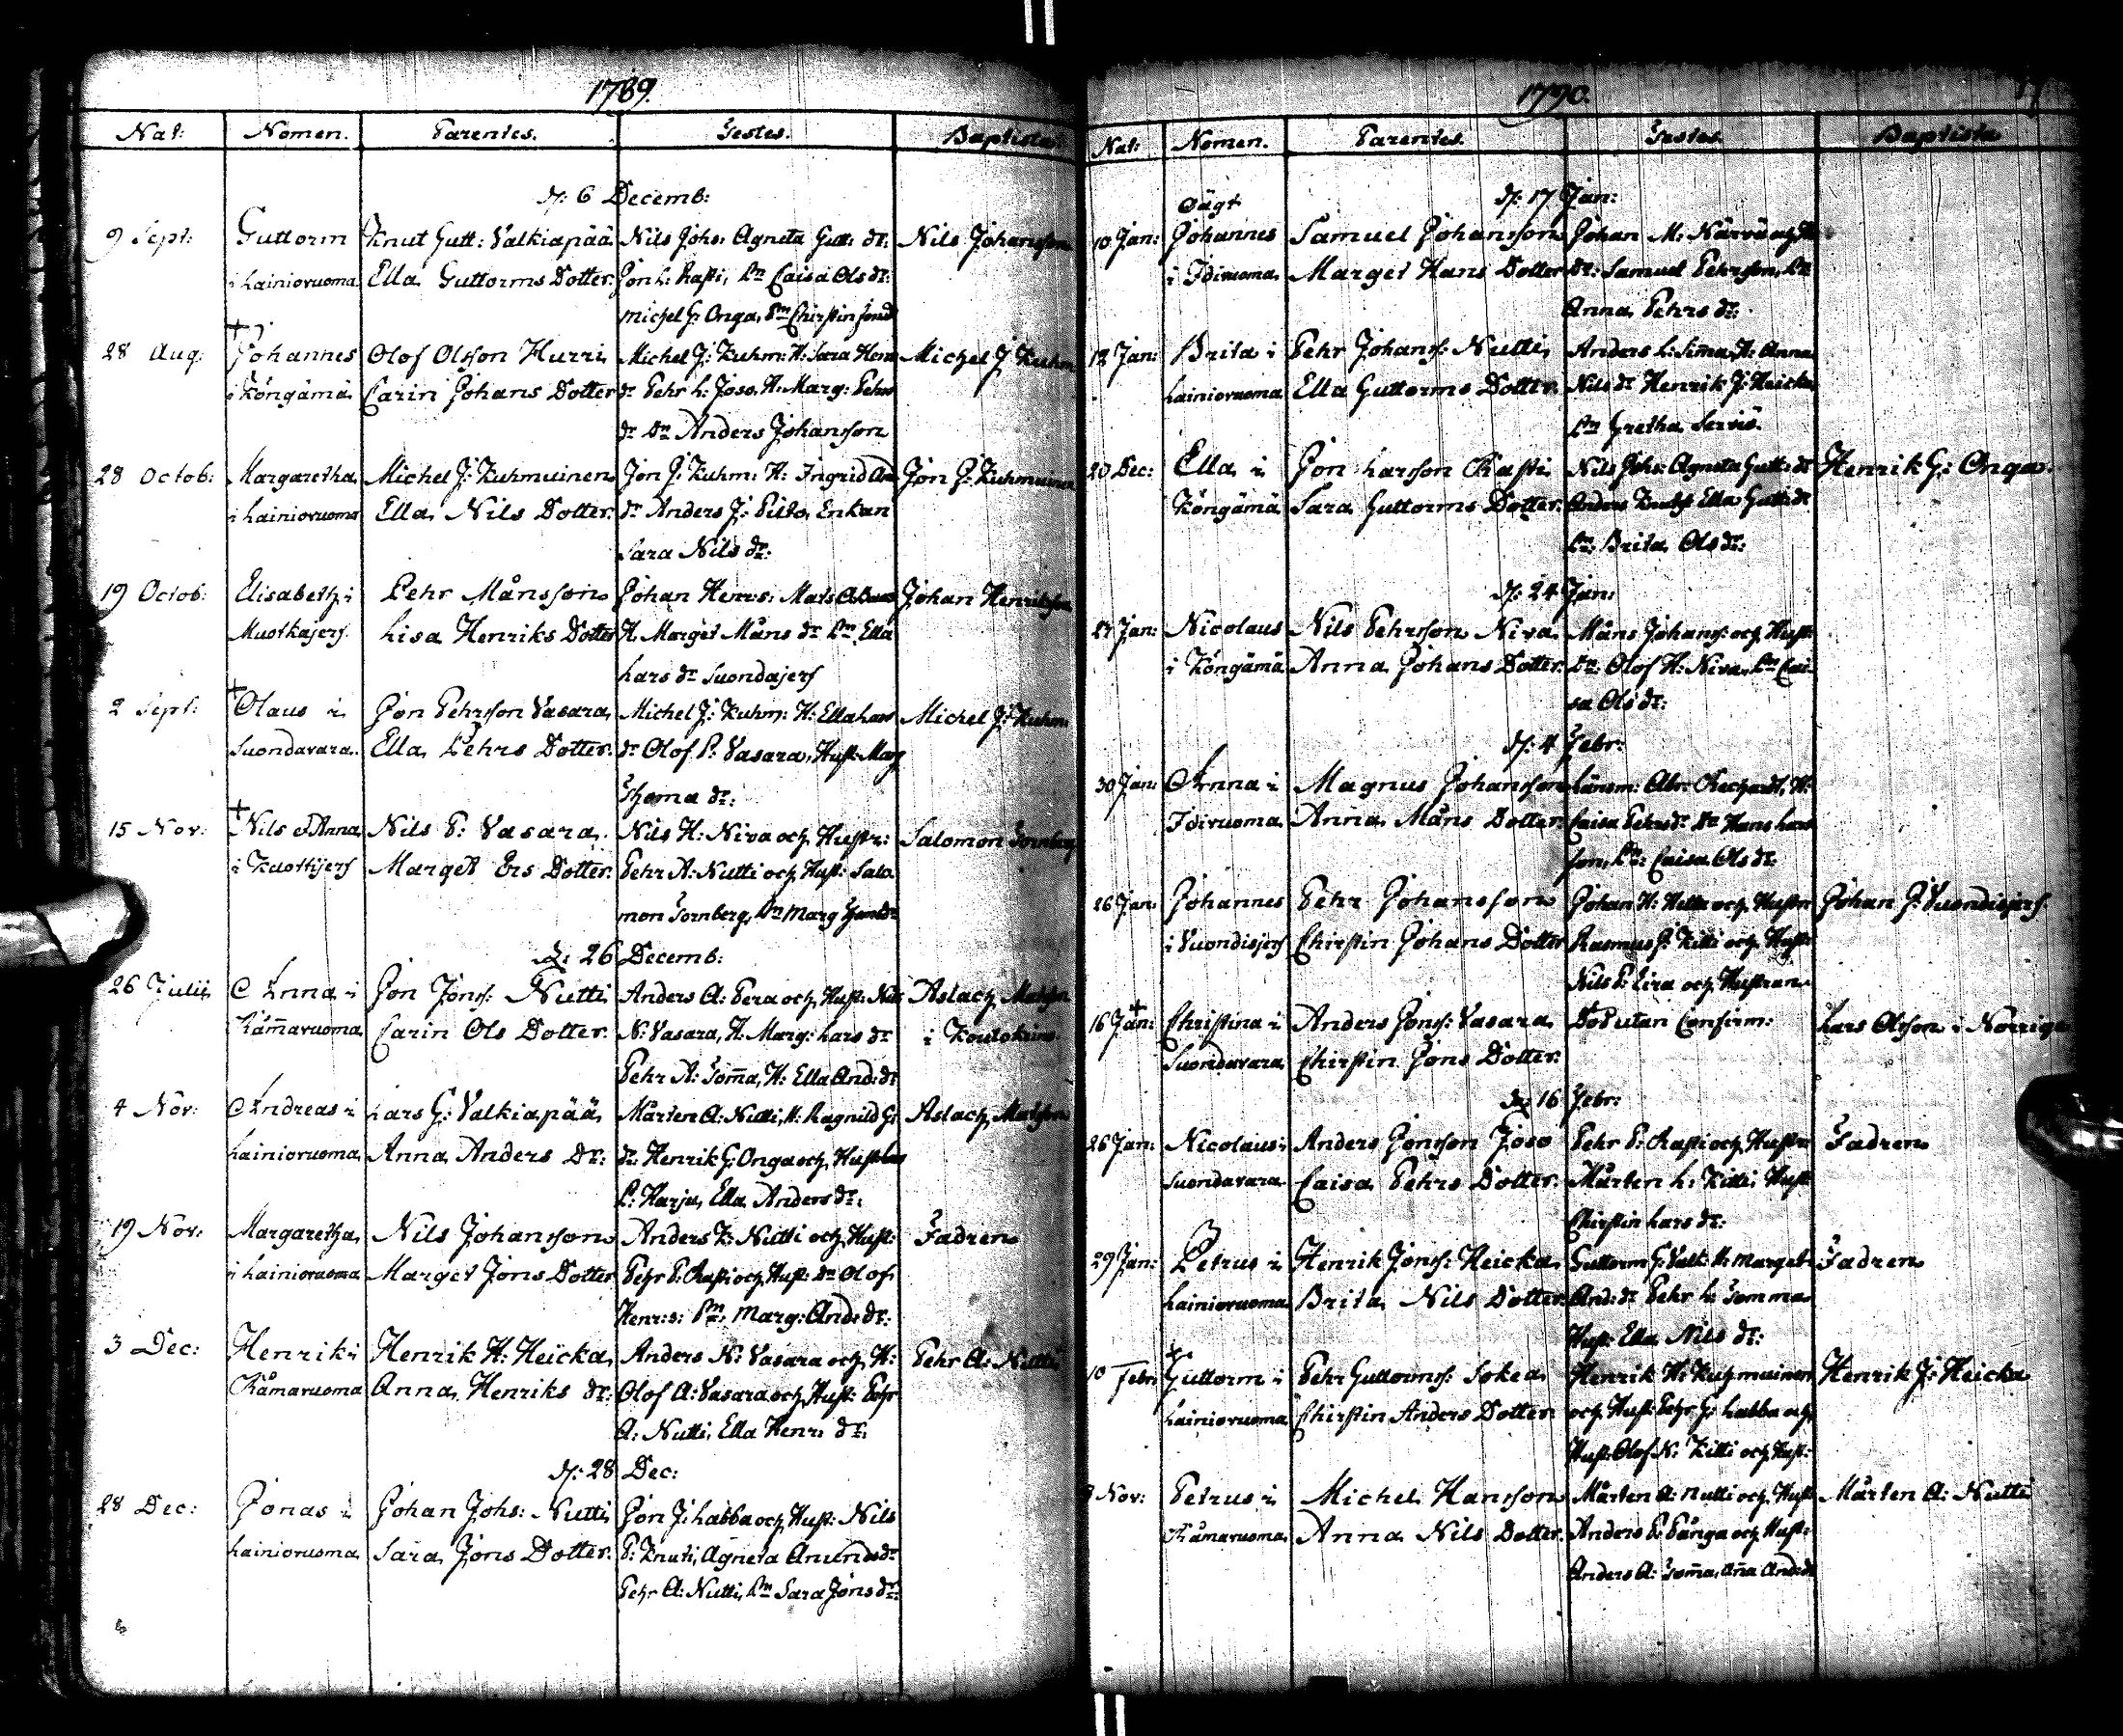 1789.
Nat: Nomen. Parentes. Testes. Baptista.
d. 6 Decemb:
9 Sept: Guttorm Knut Gutt: Valkiapää Nils Johs: Agneta Gutt: dr: Nils Johansson
i Lainiovuoma Ella Guttorms Dotter. Jon L: Rasti, Pn Caisa Ols dr:
Michel G: Onga, Pn Chirstin
28 Aug: Johannes Olof Olsson Hurri Michel J: Kuhm: H: Sara Henr Michel J: Kuhm
i Köngämä Carin Johans Dotter dr Pehr L: Joso, H: Marg: Pehrs
dr Dn Anders Johansson
28 Octob: Margaretha Michel J: Kuhmuinen Jon J: Kuhm: H: Ingrid And Jon J: Kuhmuinen
i Lainiovuoma Ella Nils Dotter. dr Anders J: Enkan
Sara Nils dr:
19 Octob: Elisabeth i Pehr Månsson Johan Henrs: Mats Johan Henriksson
Muotkajerf Lisa Henriks Dotter H. Marget Måns dr Pn Ella
Lars dr Suondajerf
2 Sept: Olaus i Jon Pehrsson Vasara Michel J: Kuhm: H: Ella Lars Michel J: Kuhm:
Suondavara. Ella Pehrs Dotter. dr Olof P: Vasara, Hust: Marg
Thoma dr:
15 Nov: Nils & Anna Nils P: Vasara. Nils H: Niva och Hustr: Salomon Tornberg
i Kuottijerf Marget Ers Dotter. Pehr A: Nutti och Hust: Salo
mon Tornberg, Pn Marg
d. 26 Decemb:
26 Julii Anna i Jon Jonss: Nutti Anders A: Pera och Hust: Nils Aslach Matsson
Råm̄avuoma Carin Ols Dotter. N: Vasara, H: Marg: Lars dr i Koutokeino.
Pehr A: Som̄a, H: Ella And: dr
4 Nov: Andreas i Lars G: Valkiapää Mårten A: Nutti, H: Ragnild G: Aslach Matsson
Lainiovuoma Anna Anders Dr: dr: Henrik G: Onga och Hust: Lars
P: Harju, Ella Anders dr:
19 Nov: Margaretha Nils Johansson Anders K: Nutti och Hust: Fadren
i Lainiovuoma Marget Jons Dotter Pehr P: Rasti och Hust: Dn Olof
Henrs: Pn: Marg: And: dr:
3 Dec: Henrik i Henrik H: Heicka Anders N: Vasara och H: Pehr A: Nutti
Råmavuoma Anna Henriks dr: Olof A: Vasara och Hust: Pehr
A: Nutti, Ella Henr: dr:
d: 28 Dec:
28 Dec: Jonas i Johan Johs: Nutti Jon J: Labba och Hust: Nils
Lainiovuoma Sara Jons Dotter. P: Knuti, Agneta Anunds dr
Pehr A: Nutti, Pn Sara Jons dr:
1790.
Nat: Nomen. Parentes. Testes Baptista
Oägt d: 17 Jan:
10 Jan: Johannes Samuel Johansson Johan M: Närvä
i Idivuoma Marget Hans Dotter Dr: Samuel Pehrsson, Pn
Anna Pehrs dr:
12 Jan: Brita i Pehr Johanss: Nutti Anders L: Sim̄a, H: Anna
Lainiovuoma Ella Guttorms Dotter. Nils dr Henrik J: Heicka
Pn Gretha Servio.
20 Dec: Ella i Jon Larsson Rasti Nils Johs: Agneta Gutt: dr Henrik G: Onga.
Köngämä Sara Guttorms Dotter. Anders Knuts: Ella Gutt: dr
Pn: Brita Ols dr:
d: 24 Jan:
Jan: Nicolaus Nils Pehrsson Niva Måns Johanss: och Hust:
i Köngämä Anna Johans Dotter. Dn: Olof H: Niva, Pn Cai-
sa Ols dr:
d: 4 Febr:
30 Jan: Anna i Magnus Johansson Länsm: Abr: Rechardt, H:
Idivuoma Anna Måns Dotter. Caisa Pehrs dr Dn Hans Lars
son, Pn: Caisa Ols dr:
26 Jan: Johannes Pehr Johansson Johan H: och Hustr Johan J: Vuondisjerf
i Vuondisjerf Chirstin Johans Dotter Rasmus J: Kitti och Hustr:
Nils P: Eira och Hustran
16 Jan: Christina i Anders Jonss: Vasara Död utan Confirm: Lars Olsson i Norrige
Suondavara Chirstin Jons Dotter.
d: 16 Febr:
26 Jan: Nicolaus i Anders Jonsson Joso Pehr P: Rasti och Hustr: Fadren
Suondavara Caisa Pehrs Dotter. Mårten L: Kitti, Hust
Chirstin Lars dr:
29 Jan: Petrus i Henrik Jonss: Heicka Guttorm G: Valk: H: Marget Fadren
Lainiovuoma Brita Nils Dotter. And: dr Pehr L: Somma
Hust: Ella Nils dr:
10 Febr: Guttorm i Pehr Guttorms: Sokea Henrik H: Kuhmuinen Henrik J: Heicka
Lainiovuoma Chirstin Anders Dotter och Hust: Pehr J: Labba och
Hust: Olof N: Kitti och Hust:
Nov: Petrus i Michel Hansson Mårten A: Nutti och Hust Mårten A: Nutti
Råmavuoma Anna Nils Dotter. Anders P: Pånga och Hust:
Anders A: Som̄a, An̄a And: dr